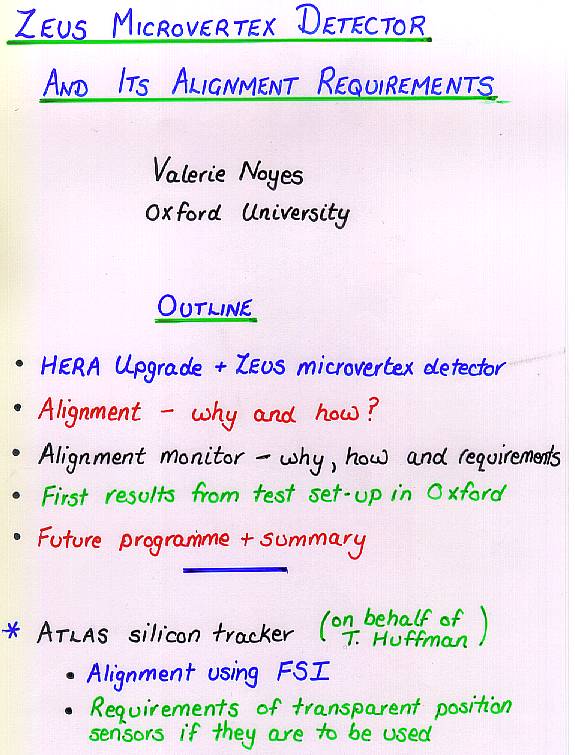 ZEUS MICROVERTEX DETECTOR
AND ITS ALIGNMENT REQUIREMENTS
Valerie Noyes
Oxford University
OUTLINE
• HERA Upgrade + ZEUS microvertex detector
• Alignment – why and how?
• Alignment monitor – why, how and requirements
• First results from test set-up in Oxford
• Future programme + summary
* ATLAS silicon tracker (on behalf of
T. Huffman)
• Alignment using FSI
• Requirements of transparent position
sensors if they are to be used